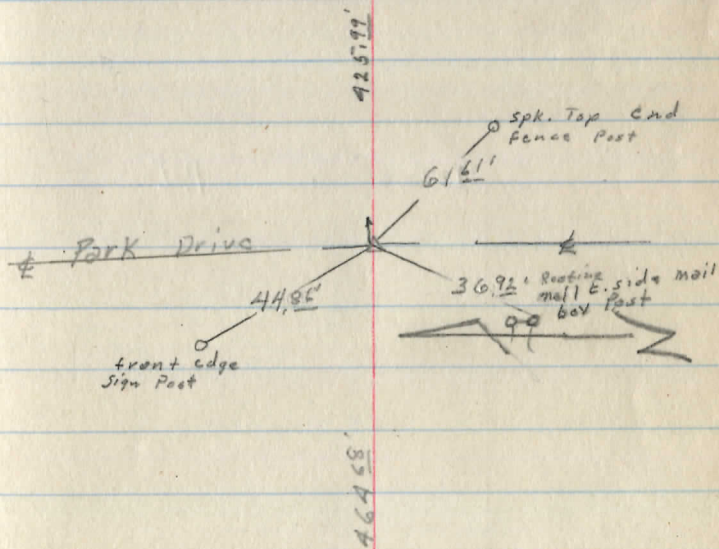 425.99'
spk. Top End
fence Post
61.61'
℄ Park Drive
℄
36.92' Roofing
nail E. side mail
box Post
44.86'
front edge
Sign Post
464.68'